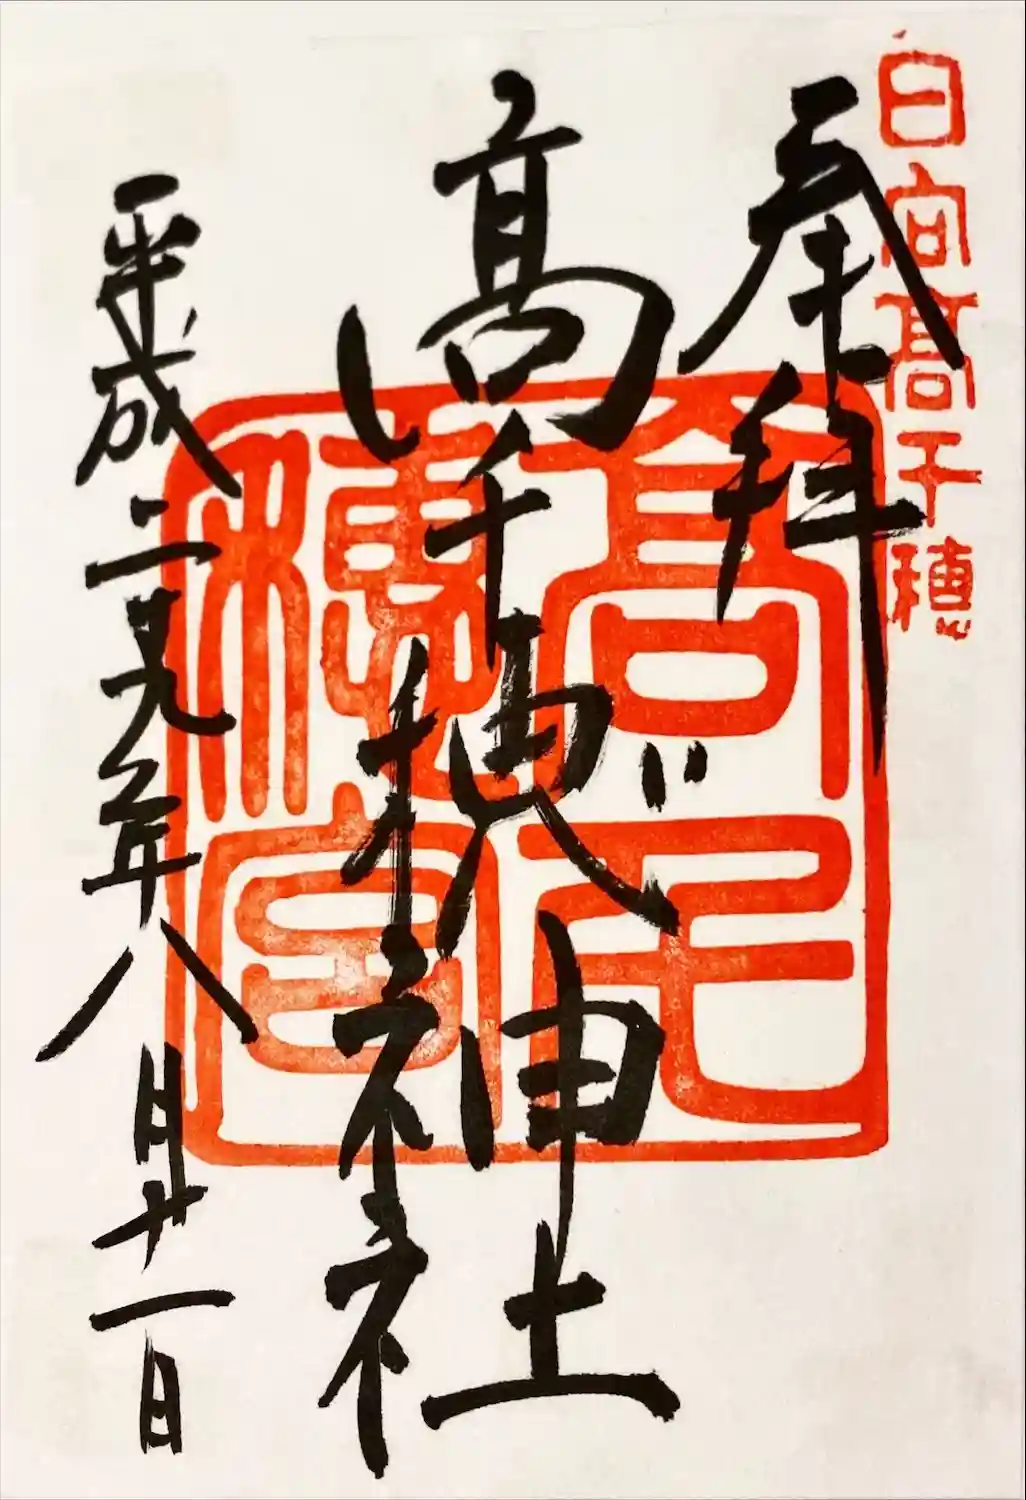 日向髙千穂
奉拝
髙千穂神社
高千穂宮
平成二十九年八月廿一日